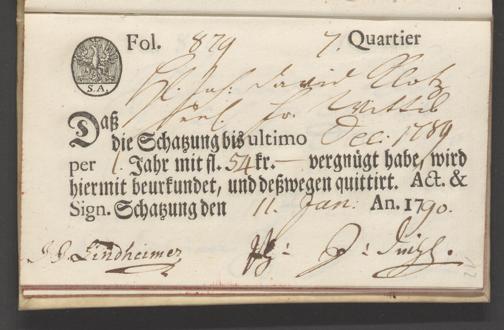 Fol. 879 7. Quartier
S. A.
Hl. Joh. David Klotz
seel. Fr. Wittib
Daß
die Schatzung bis ultimo Dec. 1789
per 1. Jahr mit fl. 54 kr. — vergnügt habe, wird
hiermit beurkundet, und deßwegen quittirt. Act. &
Sign. Schatzung den 11. Jan: An. 1790.
J J. Lindheimer